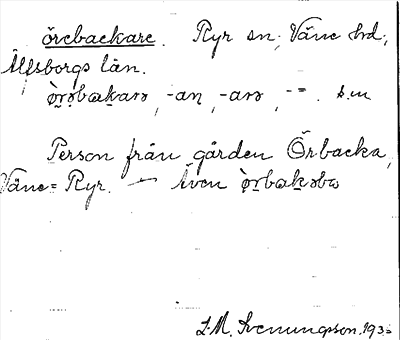 örebackare. Ryr sn; Väne hd;
Älfsborgs län.
-an, -arə, -=. s.m
Person från gården Örbacka,
Väne=Ryr. — Även
J.M. Svenungsson. 193